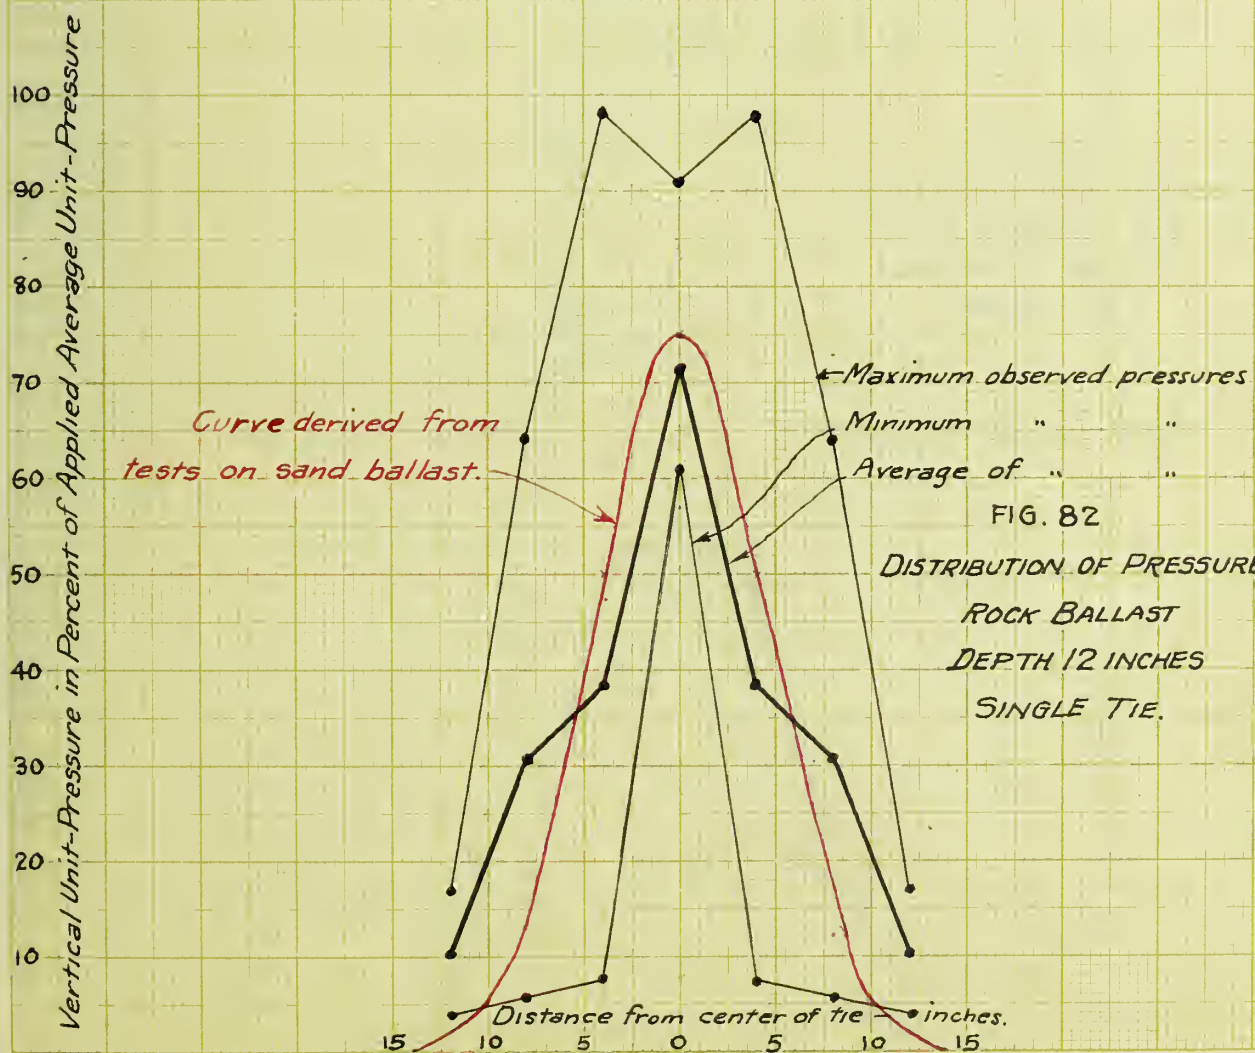 Vertical Unit-Pressure in Percent of Applied Average Unit-Pressure
100
90
80
70
60
50
40
30
20
10
Curve derived from
tests on sand ballast.
Maximum observed pressures
Minimum " "
Average of " "
FIG. 82
DISTRIBUTION OF PRESSURE
ROCK BALLAST
DEPTH 12 INCHES
SINGLE TIE.
Distance from center of tie - inches.
15 10 5 0 5 10 15